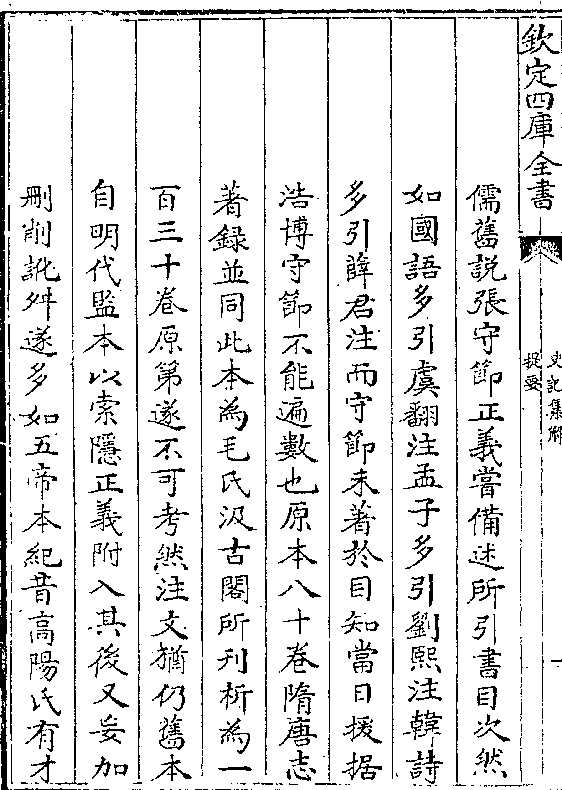 欽定四庫全書
史記集解
提要
儒舊說張守節正義嘗備述所引書目次然
如國語多引虞翻注孟子多引劉熙注韓詩
多引薛君注而守節未著於目知當日援據
浩博守節不能遍數也原本八十卷隋唐志
著錄並同此本為毛氏汲古閣所刊析為一
百三十卷原第遂不可考然注文猶仍舊本
自明代監本以索隱正義附入其後又妄加
刪削訛舛遂多如五帝本紀昔高陽氏有才